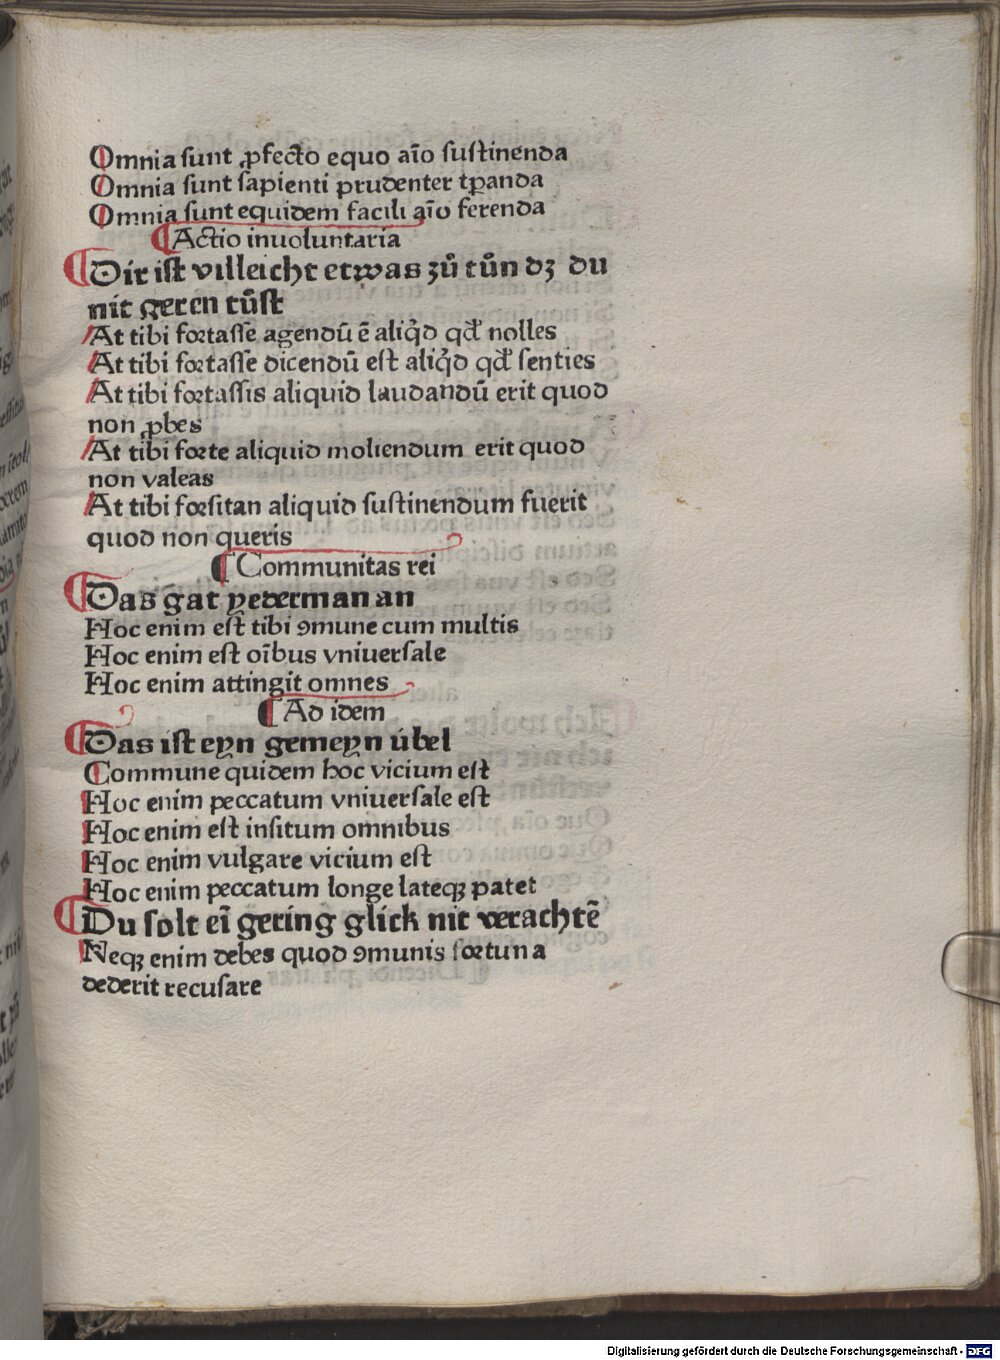 Omnia sunt ꝓfecto equo aīo sustinenda
Omnia sunt sapienti prudenter tꝑanda
Omnia sunt equidem facili aīo ferenda
¶ Actio inuoluntaria
¶ Dir ist villeicht etwas zů tůn dꝫ du
nit geren tůst
At tibi fortasse agendū ē aliq̇d qd̓ nolles
At tibi fortasse dicendū est aliq̇d qd̓ senties
At tibi fortassis aliquid laudandū erit quod
non ꝓbes
At tibi forte aliquid moliendum erit quod
non valeas
At tibi forsitan aliquid sustinendum fuerit
quod non queris
¶ Communitas rei
¶ Das gat yederman an
Hoc enim est tibi ꝯmune cum multis
Hoc enim est oībus vniuersale
Hoc enim attingit omnes
¶ Ad idem
¶ Das ist eyn gemeyn úbel
Commune quidem hoc vicium est
Hoc enim peccatum vniuersale est
Hoc enim est insitum omnibus
Hoc enim vulgare vicium est
Hoc enim peccatum longe lateqꝫ patet
¶ Du solt eī gering glick nit verachtē
Neqꝫ enim debes quod ꝯmunis fortuna
dederit recusare
Digitalisierung gefördert durch die Deutsche Forschungsgemeinschaft - DFG